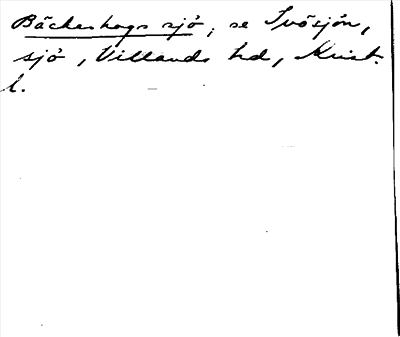 Bäckeshogs sjö, se Ivösjön,
sjö, Villands hd, Krist.
l.